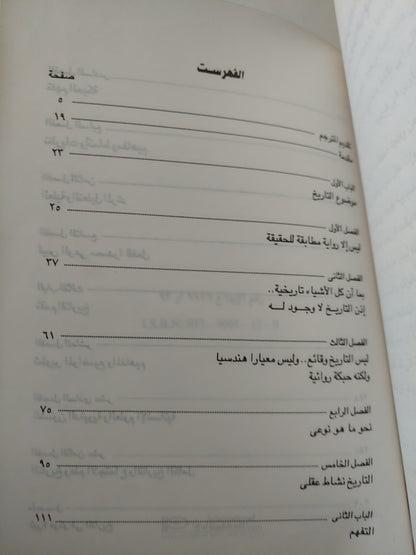 الفهرست
صفحة
تقديم المترجم ٥
مقدمة ١٩
الباب الأول ٢٣
موضوع التاريخ
الفصل الأول ٢٥
ليس إلا رواية مطابقة للحقيقة
الفصل الثانى ٣٧
بما أن كل الأشياء تاريخية..
إذن التاريخ لا وجود لـه
الفصل الثالث ٦١
ليس التاريخ وقائع.. وليس معيارا هندسيا
ولكنه حبكة روائية
الفصل الرابع ٧٥
نحو ما هو نوعى
الفصل الخامس ٩٥
التاريخ نشاط عقلى
الباب الثانى ١١١
التفهم